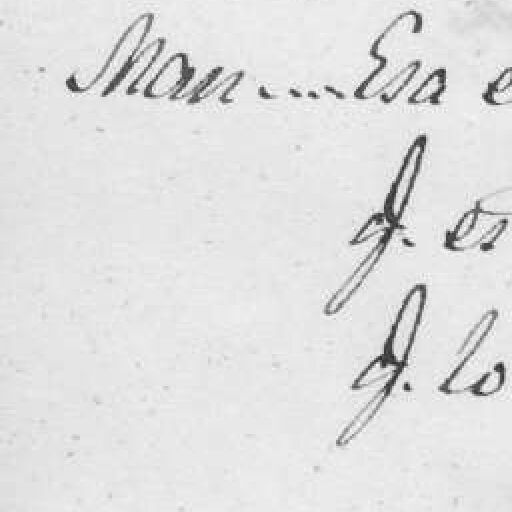 Man.....Esa e
J. es
J. lo